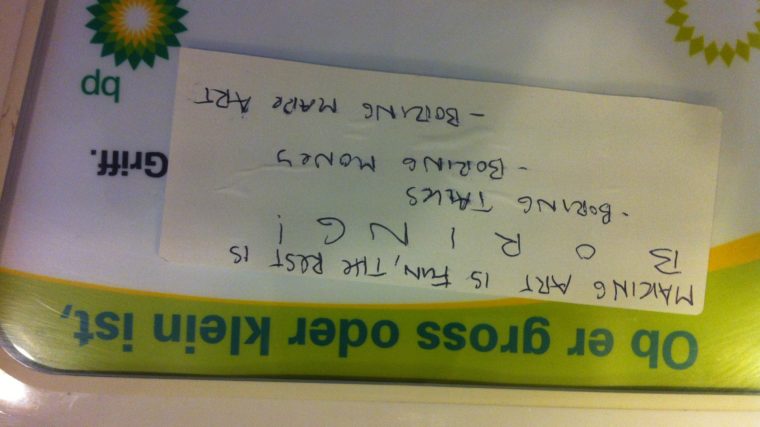 Ob er gross oder klein ist,
MAKING ART IS FUN, THE REST IS
B O R I N G !
- BORING TALKS
- BORING MONEY
- BORING ART
Griff.
bp